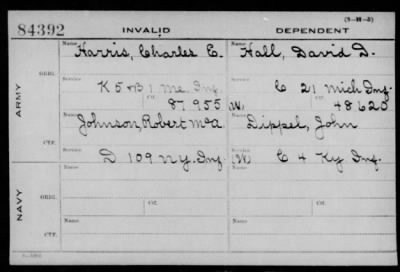 (3-H-5)
84392 INVALID DEPENDENT
Name Harris, Charles E. Name Hall, David D.
ORIG.
Service K 5 & B 1 Me. Inf. Service C 21 Mich Inf.
ARMY
Ctf. 87955 (W) Ctf. 48620
Johnson, Robert McA. Dippel, John
CTF.
Service D 109 N.Y. Inf. (W) C 4 Ky Inf.
Name Name
ORIG.
Service Service
NAVY
Ctf. Ctf.
Name Name
CTF.
Service Service